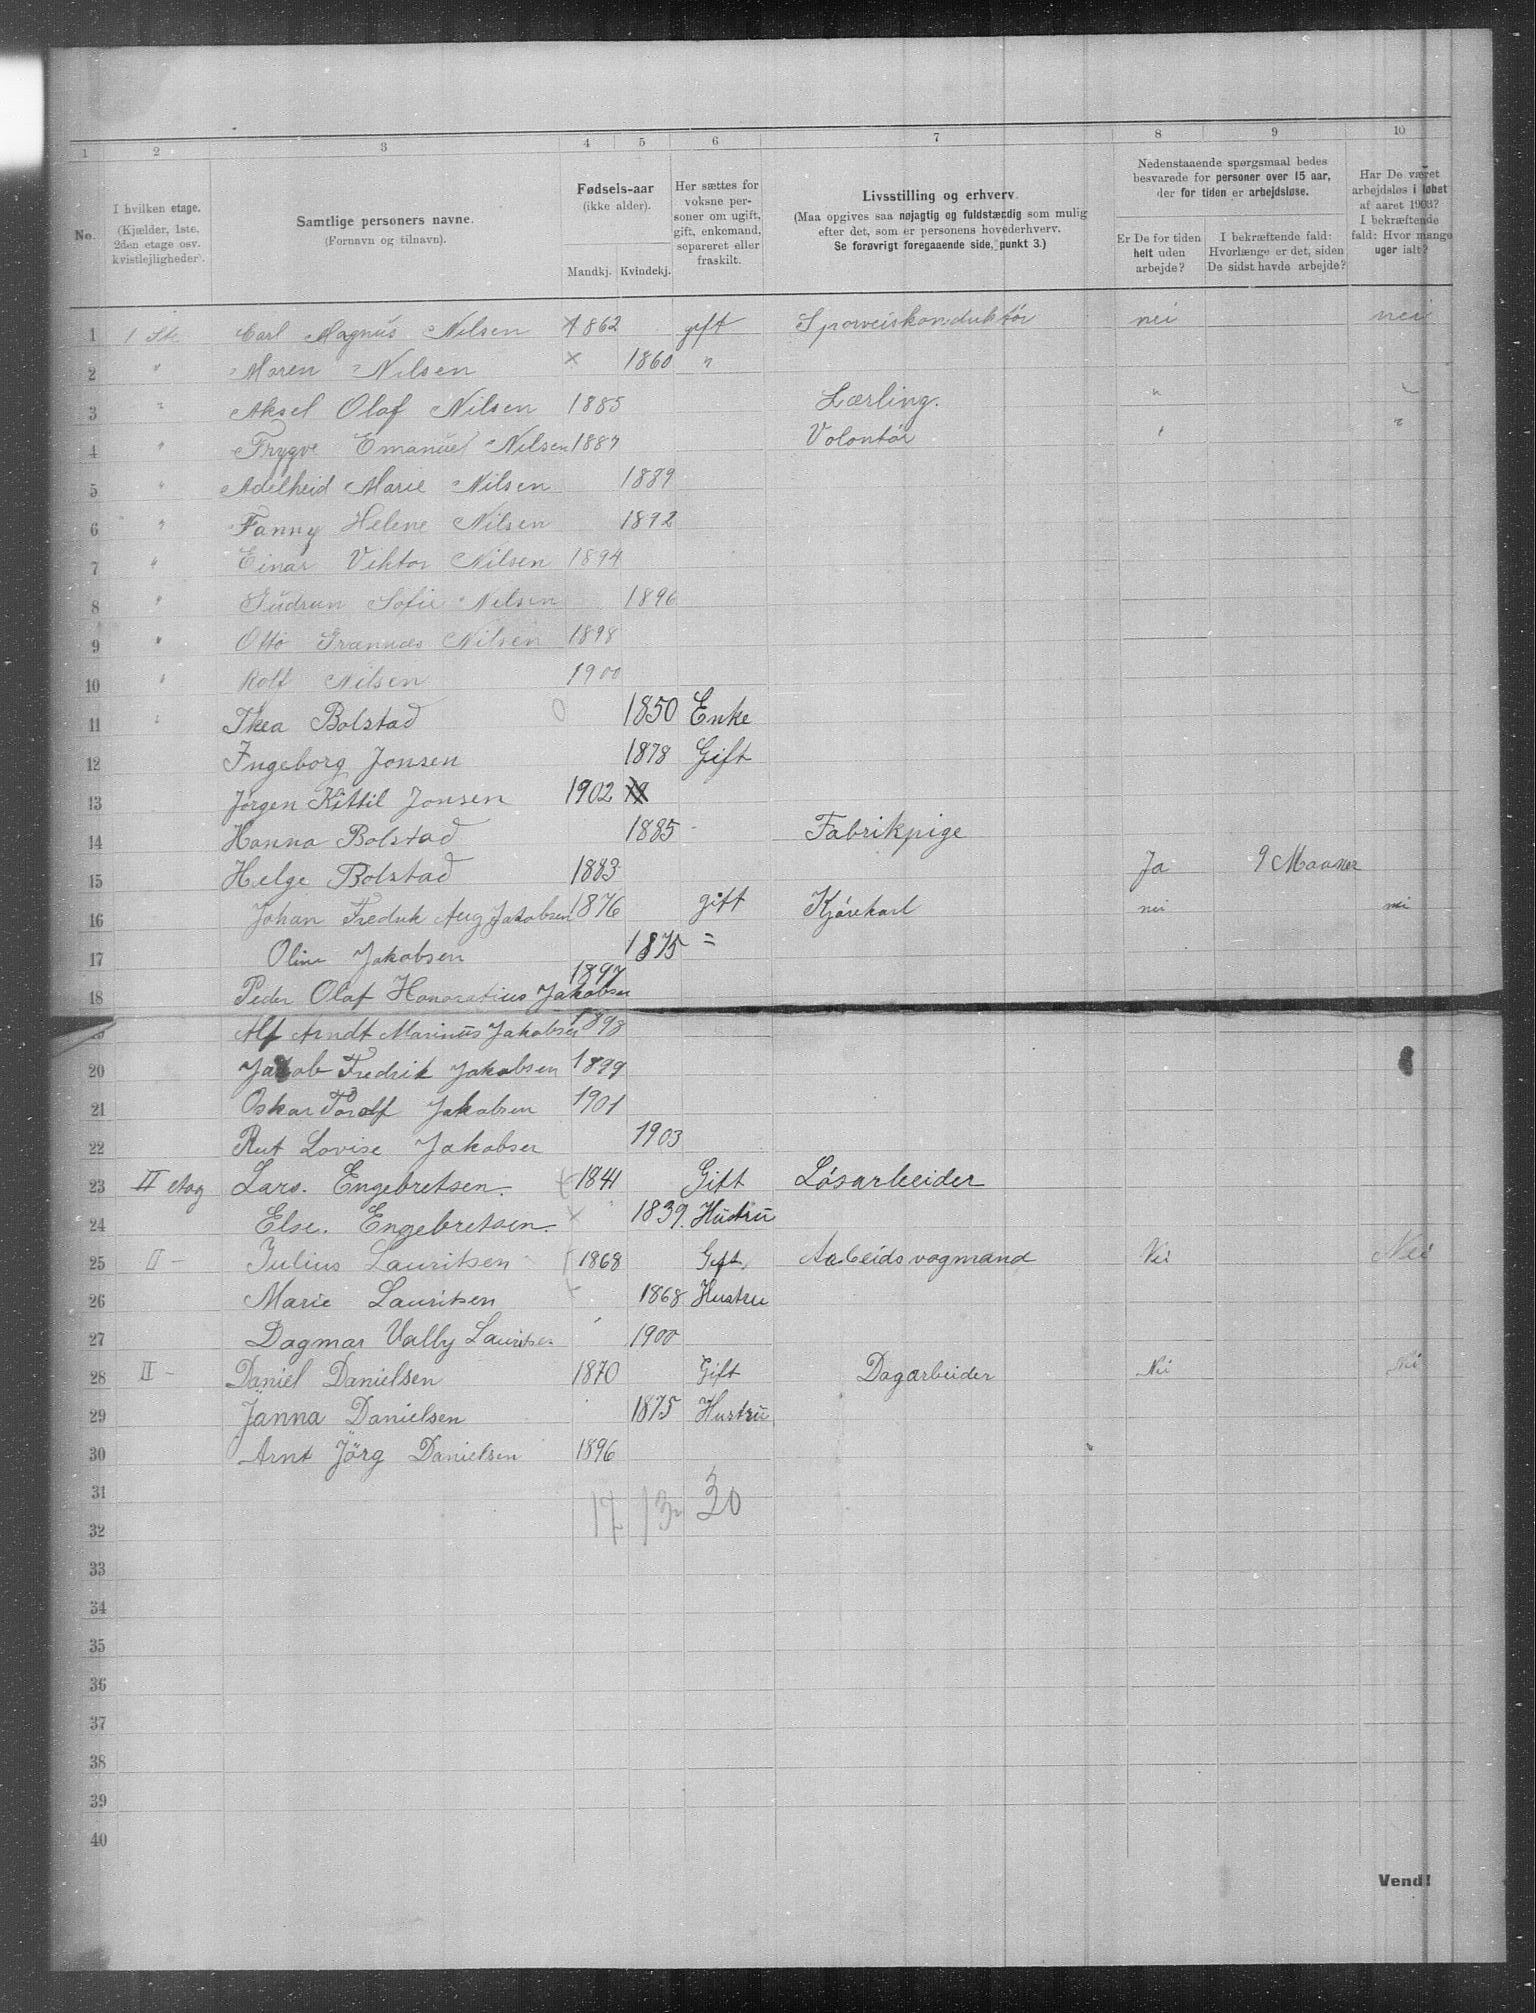 1 2 3 4 5 6 7 8 9 10
No. I hvilken etage. (Kjælder, 1ste, 2den etage osv. kvistlejligheder). Samtlige personers navne. (Fornavn og tilnavn). Fødsels-aar (ikke alder). Mandkj. Kvindekj. Her sættes for voksne personer om ugift, gift, enkemand, separeret eller fraskilt. Livsstilling og erhverv. (Maa opgives saa nøjagtig og fuldstændig som mulig efter det, som er personens hovederhverv. Se forøvrigt foregaaende side, punkt 3.) Nedenstaaende spørgsmaal bedes besvarede for personer over 15 aar, der for tiden er arbejdsløse. Er De for tiden helt uden arbejde? I bekræftende fald: Hvorlænge er det, siden De sidst havde arbejde? Har De været arbejdsløs i løbet af aaret 1903? I bekræftende fald: Hvor mange uger ialt?
1 1 St. Carl Magnus Nilsen × 1862 gift Sporveiskonduktør nei nei
2 " Maren Nilsen × 1860 "
3 " Aksel Olaf Nilsen 1885 Lærling. " "
4 " Trygve Emanuel Nilsen 1887 Volontør " "
5 " Adelheid Marie Nilsen 1889
6 " Fanny Helene Nilsen 1892
7 " Einar Viktor Nilsen 1894
8 " Gudrun Sofie Nilsen 1896
9 " Otto Nilsen 1898
10 " Rolf Nilsen 1900
11 " Thea Bolstad 0 1850 Enke
12 Ingeborg Jonsen 1878 Gift
13 Jørgen Kittil Jonsen 1902
14 Hanna Bolstad 1885 - Fabrikpige
15 Helge Bolstad 1883 Ja 9 Maaner
16 Johan Fredrik Aug Jakobsen 1876 gift Kjørekarl nei nei
17 Oline Jakobsen 1875 =
18 Peder Olaf Honoratius Jakobsen 1897
19 Alf Arndt Marinus Jakobsen 1898
20 Jakob Fredrik Jakobsen 1899
21 Oskar Torolf Jakobsen 1901
22 Rut Lovise Jakobsen 1903
23 II etag Lars. Engebretsen. × 1841 Gift Løsarbeider
24 Else. Engebretsen. × " 1839. Hustru
25 II - Julius Lauritsen 1868 Gift. Arbeidsvogmand Nei Nei
26 Marie Lauritsen 1868 Hustru
27 Dagmar Vally Lauritsen 1900
28 II - Daniel Danielsen 1870 Gift Dagarbeider Nei Nei
29 Janna Danielsen 1875 Hustru
30 Arnt Jörg Danielsen 1896
31 17 13 30
32
33
34
35
36
37
38
39
40
Vend!